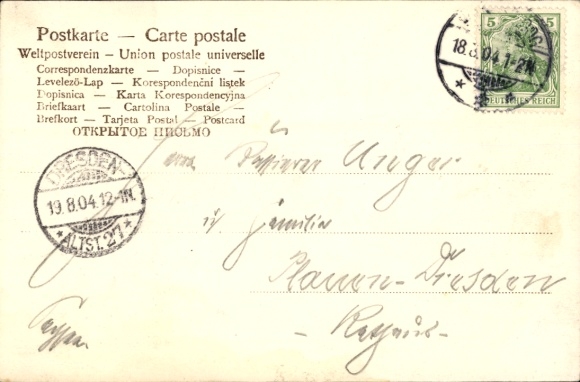 Postkarte — Carte postale
Weltpostverein – Union postale universelle
Correspondenzkarte — Dopisnice —
Levelező-Lap — Korespondenční lístek
Dopisnica — Karta Korespondencyjna
Briefkaart — Cartolina Postale —
Brefkort — Tarjeta Postal — Postcard
ОТКРЫТОЕ ПИСЬМО
5 5
18.8.04.1-2N.
DEUTSCHES REICH
DRESDEN-
19.8.04.12-1N.
* ALTST. 27 *
Unger
u Familie
Plauen-Dresden
- Rathaus -